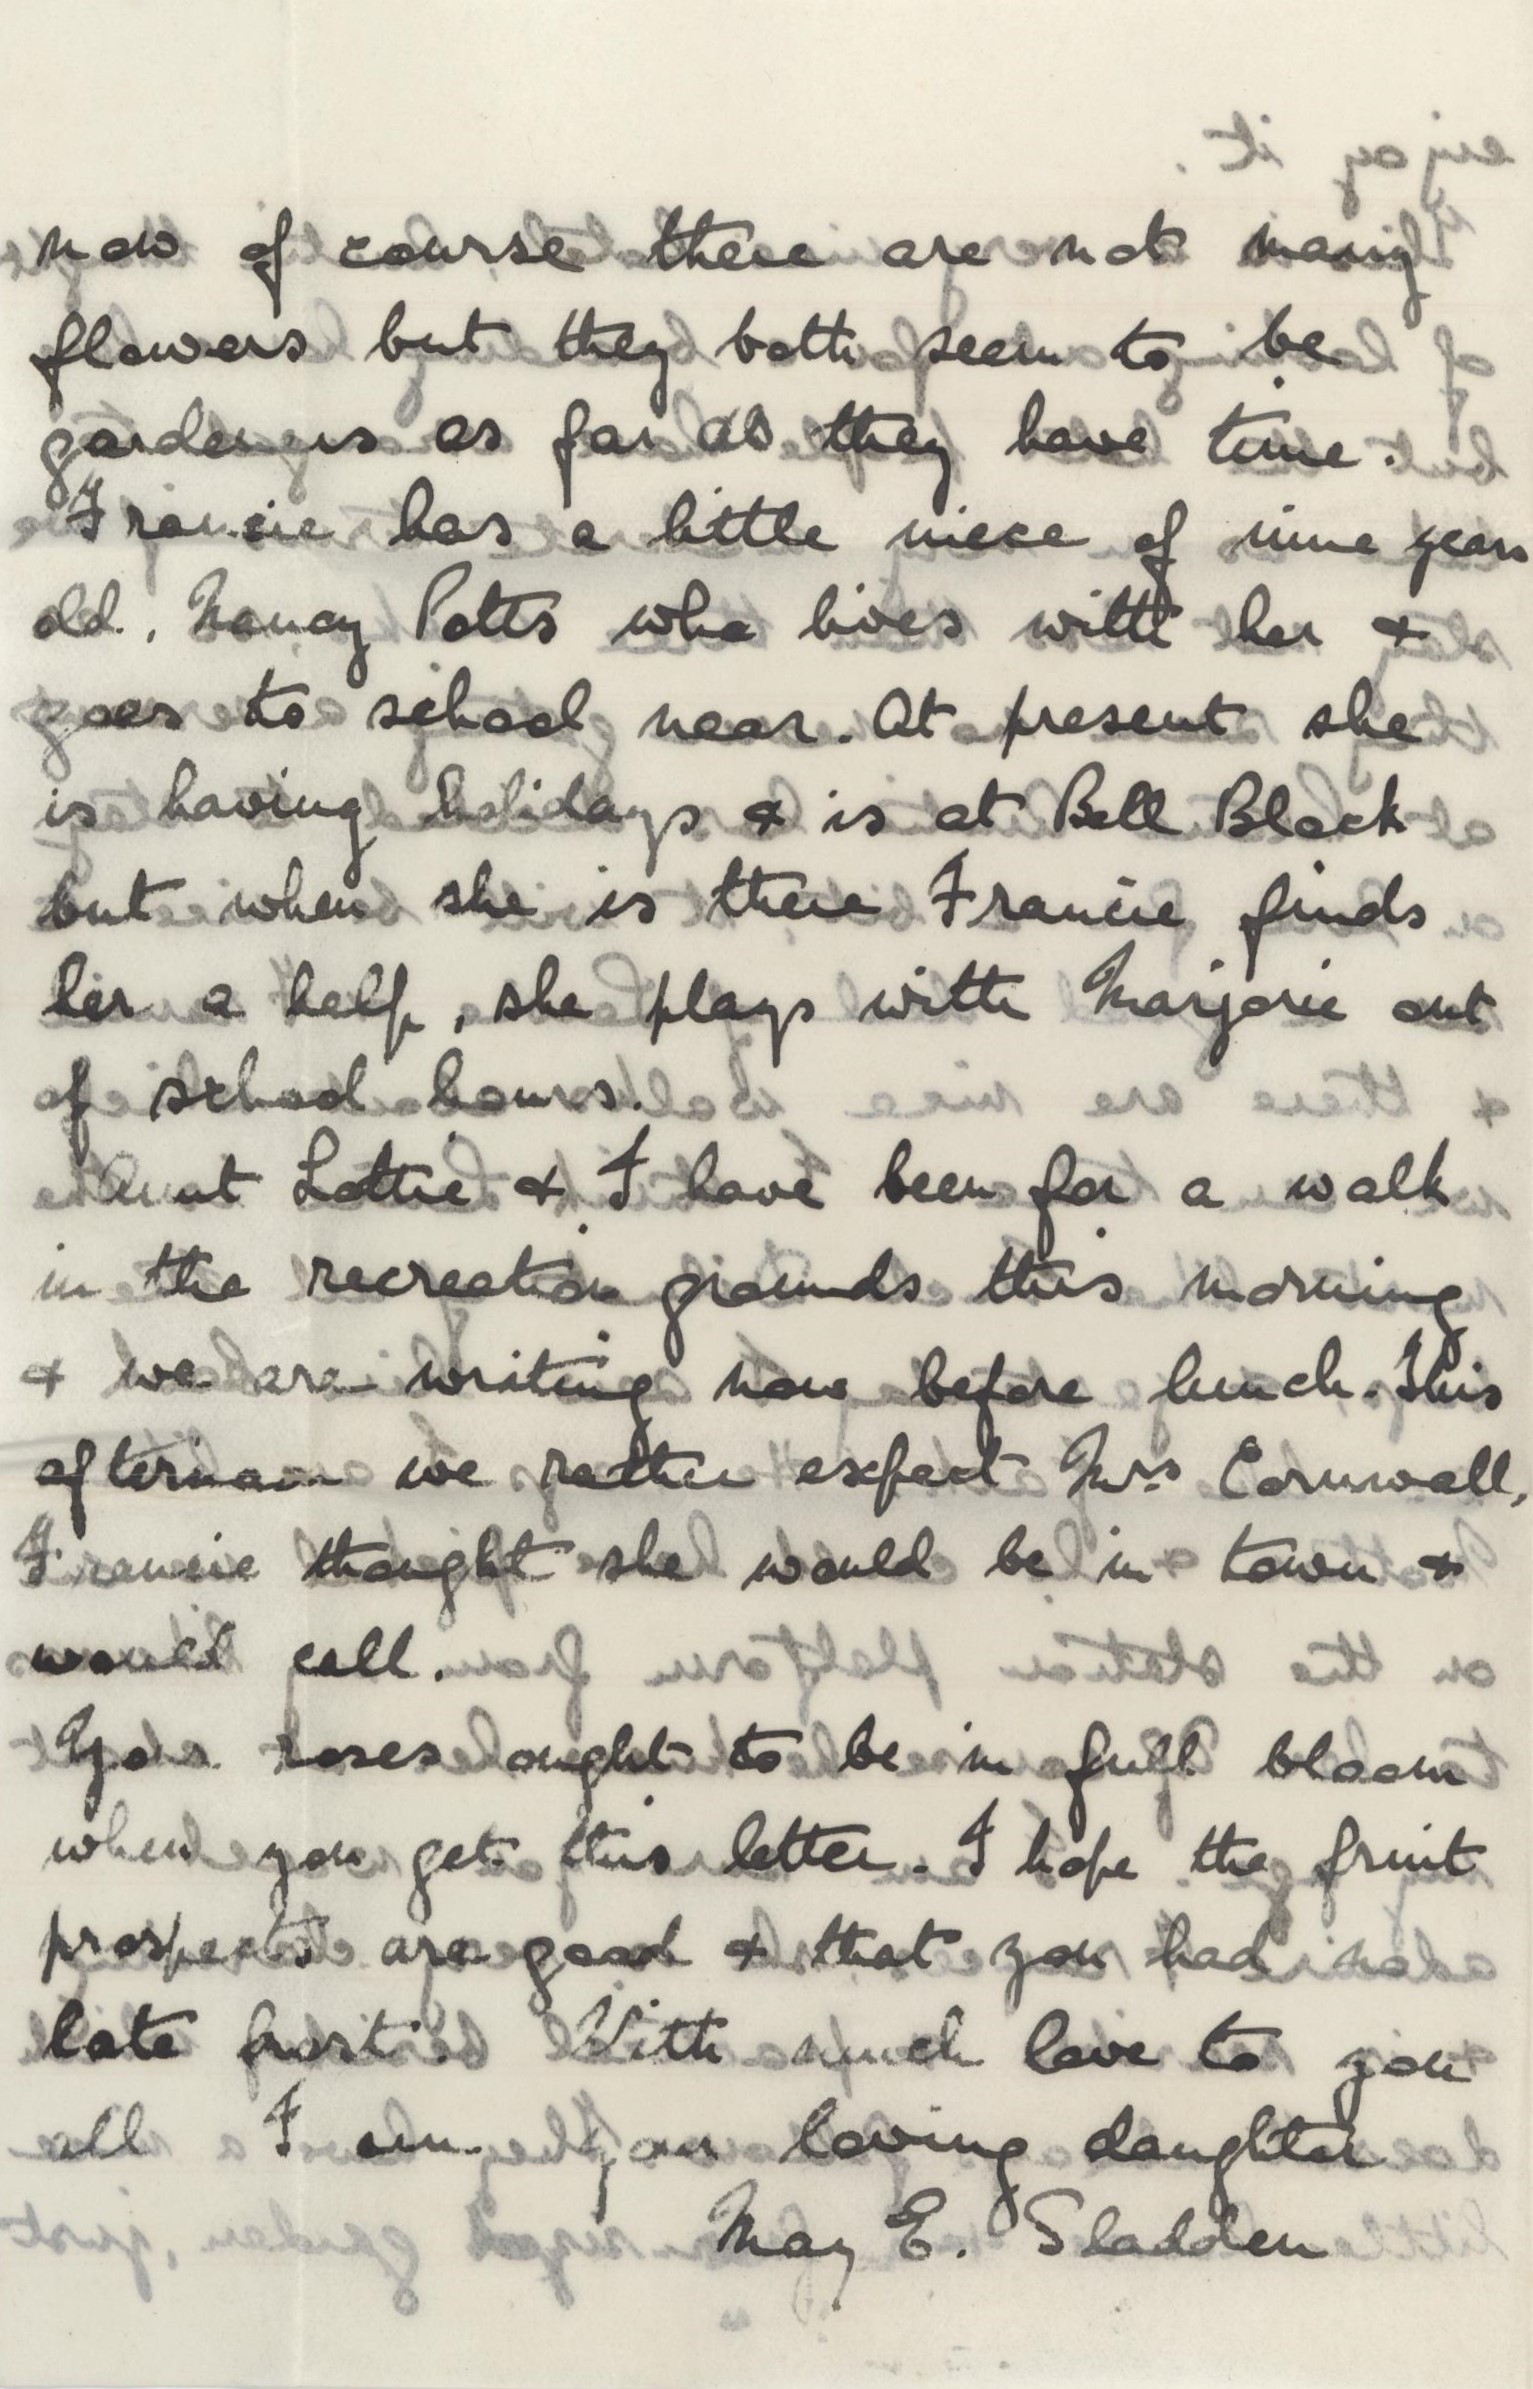 now of course there are not many
flowers but they both seem to be
gardeners as far as they have time.
Francie has a little niece of nine years
old, Nancy Potts who lives with her &
goes to school near. At present she
is having holidays & is at Bell Block
but when she is there Francie finds
her a help, she plays with Marjorie out
of school hours.
Aunt Lottie & I have been for a walk
in the recreation grounds this morning
& we are writing now before lunch. This
afternoon we rather expect Mrs Cornwall,
Francie thought she would be in town &
would call.
Your roses ought to be in full bloom
when you get this letter. I hope the fruit
prospects are good & that you had no
late frost. With much love to you
all I am your loving daughter
May E. Sladden